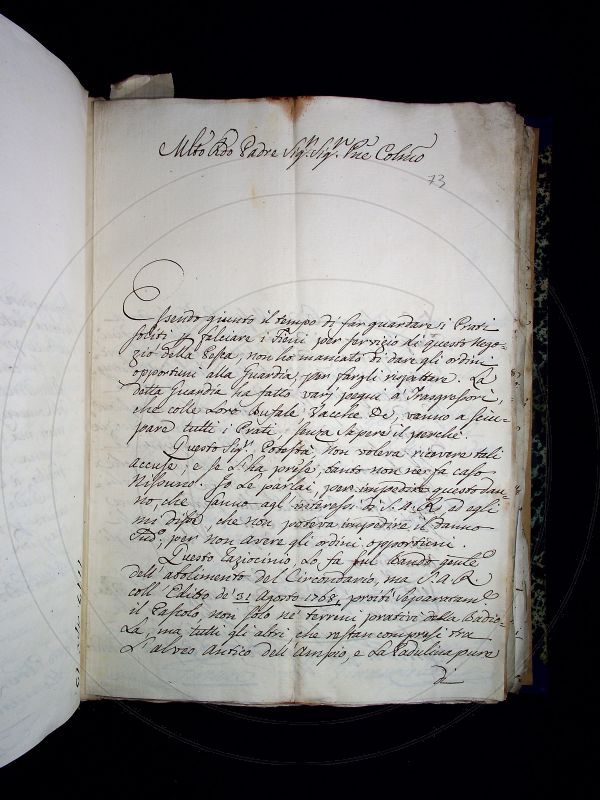 Mlto Rdo Padre Sigr. Sigr. Pne Colmo
73
Essendo giunto il tempo di far guardare i Prati
soliti p falciare i Fieni per servizio di questo Nego-
zio della Pesca, non ho mancato di dare gli ordini
opportuni alla Guardia, per fargli rispettare. La
detta Guardia ha fatto varj pegni a' Trasgressori,
che colle Loro Bufale Vacche &c, vanno a sciu-
pare tutti i Prati senza sapere il perchè.
Questo Sigr. Potestà non voleva ricevere tali
accuse; e se l'ha prese, tanto non ne fa caso
Nissuno. Io le parlai, per impedire questo dan-
no che fanno agli interessi di S. A. R. ed egli
mi disse, che non poteva impedire il danno
sudo, per non avere gli ordini opportuni.
Questo raziocinio, Lo fa sul Bando gnle
dell'abolimento del Circondario, ma S. A. R.
coll'Editto de' 31 Agosto 1768, proibì separatame
il Pascolo, non solo ne' terreni prativi della Badio-
La, ma tutti gli altri, che restan compresi tra
L'alveo Antico dell'Ampio, e La Padulina pure
di